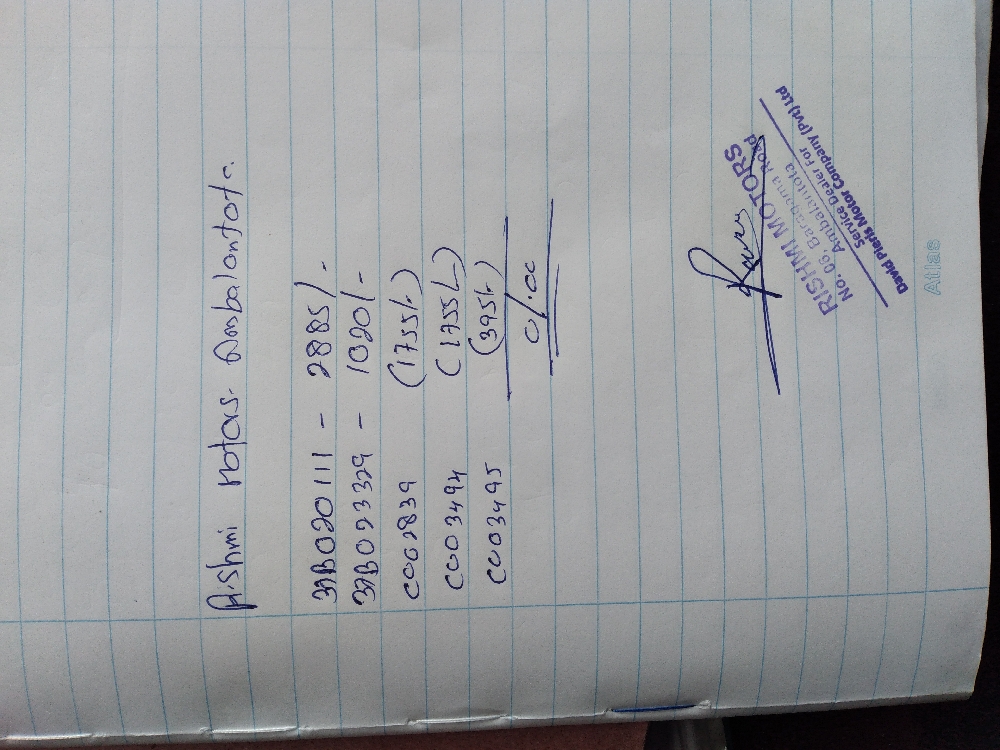 Rishmi Motors - Ambalantota
33B020111 - 2885/-
33B023329 - 1020/-
C002839 (1755/-)
C003494 (1755/-)
C003495 (395/-)
0/.00
RISHMI MOTORS
No. 06, Baragama Road
Ambalantota
Service Dealer For
David Pieris Motor Company (Pvt) Ltd
Atlas